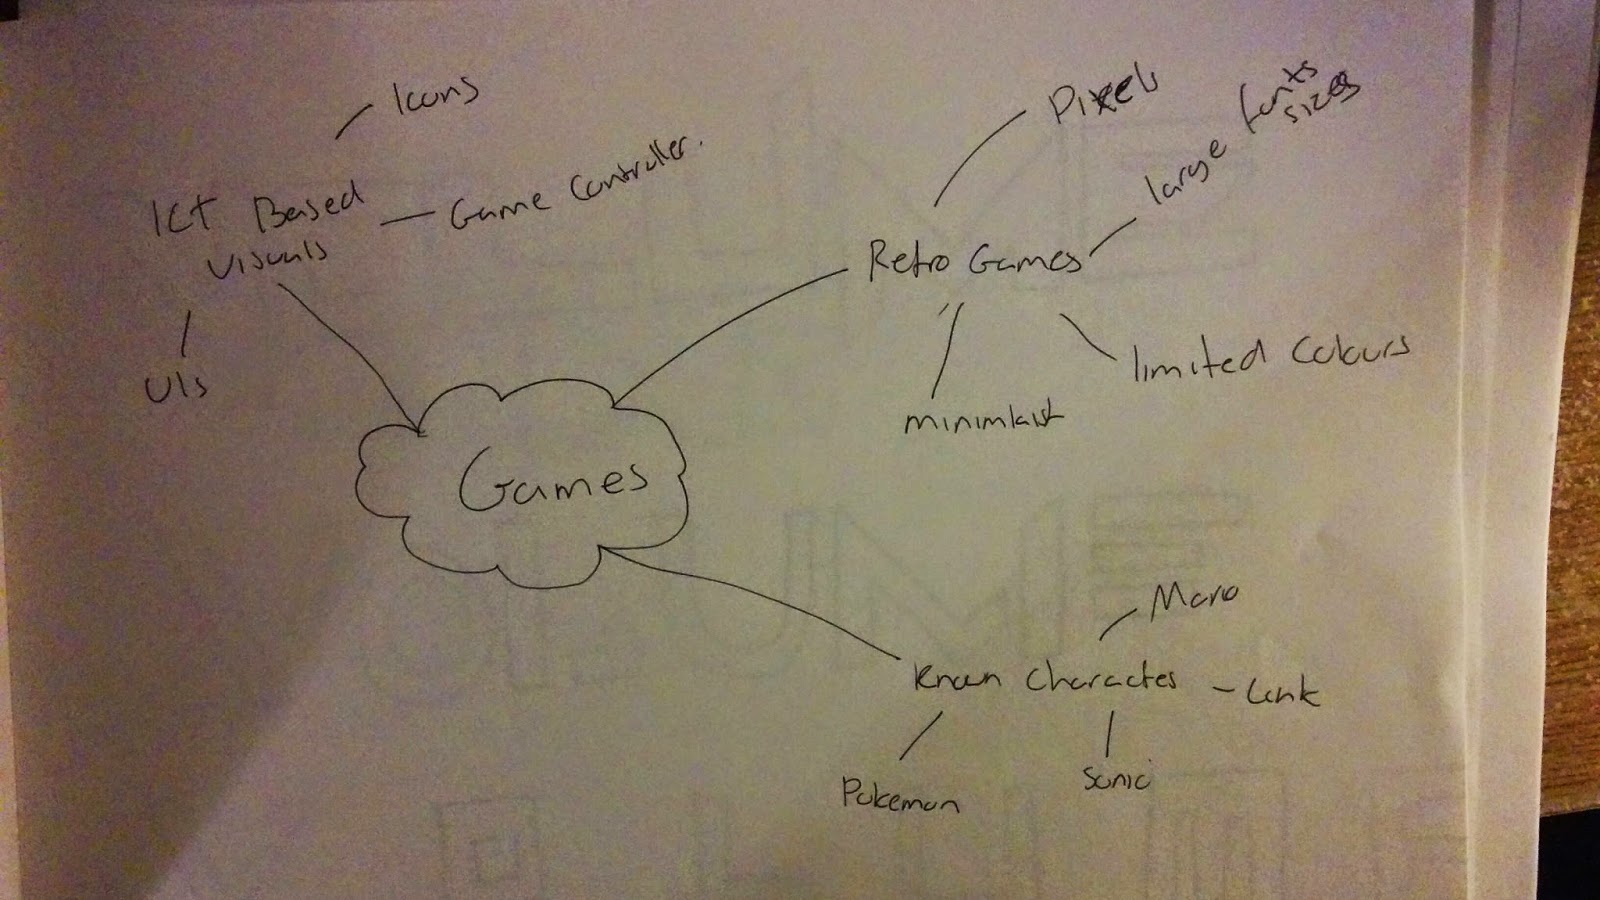 Icons
ICT Based
Visuals
Game Controller.
UIs
Pixels
large fonts
sizes
Retro Games
limited Colours
minimlaist
Games
Mario
Known Charactes
Link
Pokemon
Sonic